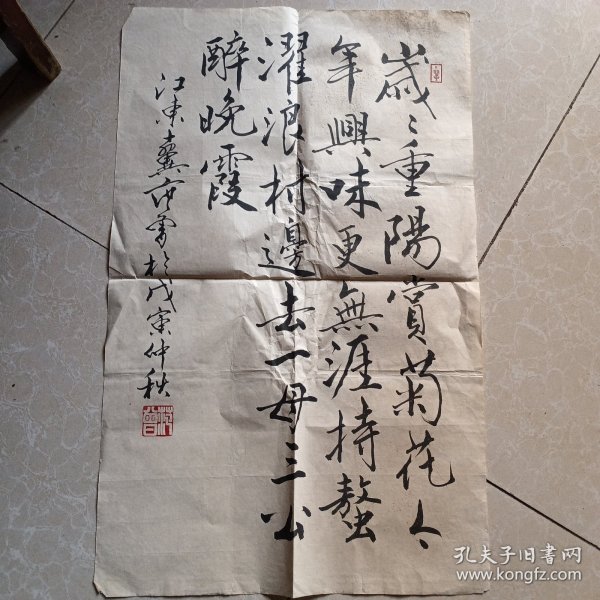 歲〻重陽賞菊花今
年興味更無涯持螯
濯浪村邊去一母三公
醉晚霞
江東翼范曾於戊寅仲秋
孔夫子旧书网
www.kongfz.com